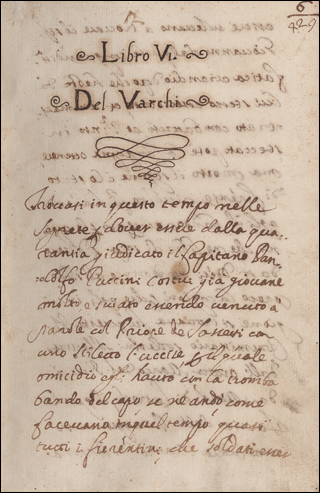 6
429
Libro VI.
Del Varchi
Trovavasi in questo tempo nelle
segrete p dover essere dalla qua-
rantia giudicato il Capitano Pan-
dolfo Puccini costui già giovane
molto e sviato essendo venuto a
parole col Priore de Sassesi con
uno stiletto l'uccise p il quale
omicidio egli havuto con la tromba
bando del capo se ne andò, come
facevano in quel tempo quasi
tutti i fiorentini, che soldati esser